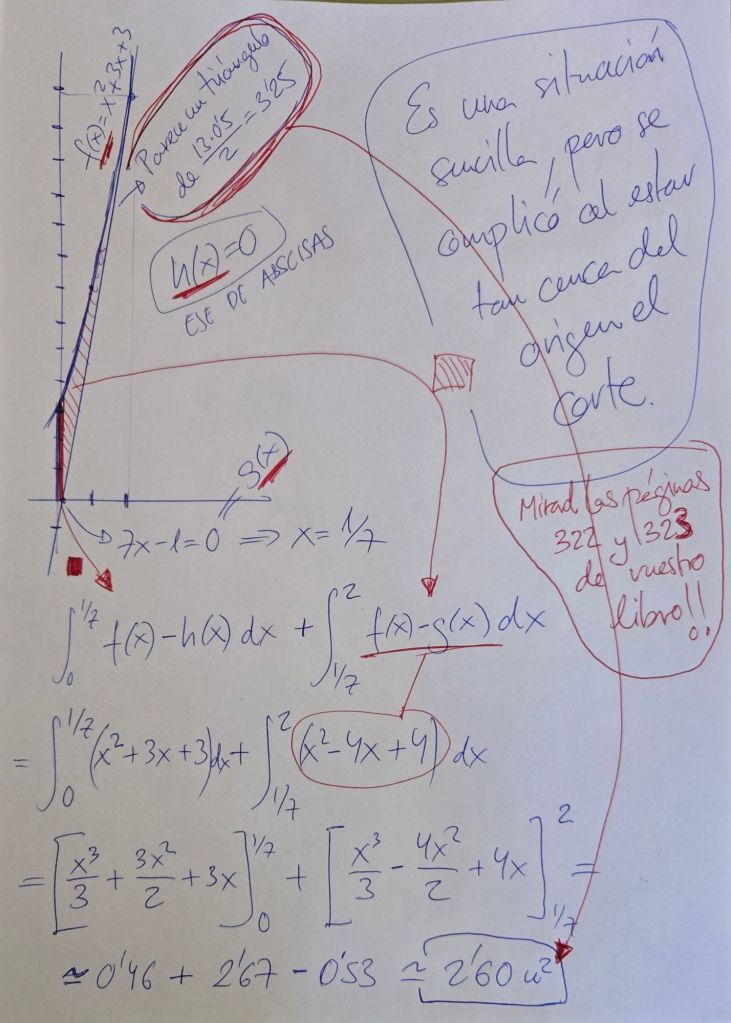 f(x)=x²+3x+3
→ Parece un triángulo
de 13·0'5/2 = 3'25
h(x)=0
EJE DE ABSCISAS
Es una situación
sencilla, pero se
complicó al estar
tan cerca del
origen el
corte.
g(x)
7x-1=0 ⟹ x=1/7
Mirad las páginas
322 y 323
de vuestro
libro!!
∫₀^1/7 f(x)-h(x) dx + ∫_1/7^2 f(x)-g(x) dx
= ∫₀^1/7 (x²+3x+3)dx + ∫_1/7^2 (x²-4x+4) dx
= [x³/3 + 3x²/2 + 3x]₀^1/7 + [x³/3 - 4x²/2 + 4x]_1/7^2 =
≃ 0'46 + 2'67 - 0'53 ≃ 2'60 u²